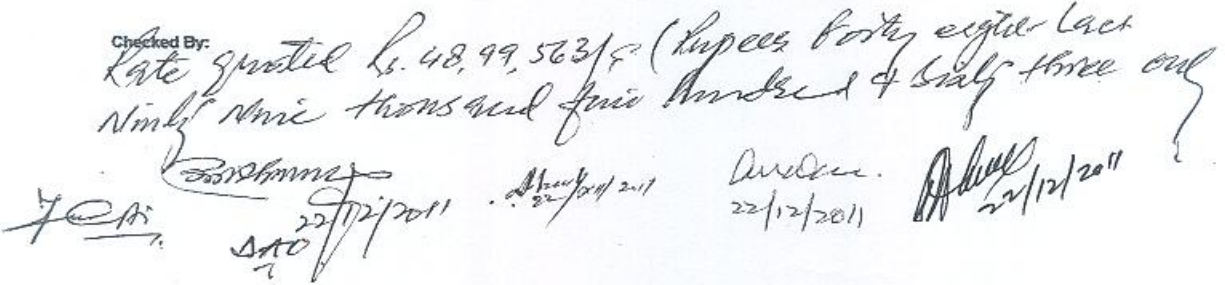 Checked By:
Rate quoted Rs. 48,99,563/= (Rupees Forty eight Lacs
Ninty Nine thousand five hundred & Sixty three only
22/12/2011 22/12/2011 22/12/2011 22/12/2011
DAO